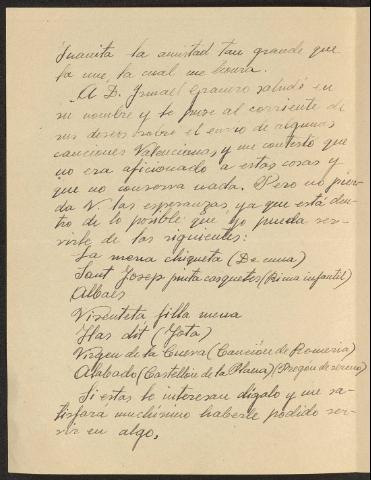 Juanita la amistad tan grande que
la une, la cual me honra.
A D. Ismael Granero saludé en
su nombre y le puse al corriente de
sus deseos sobre el envio de algunas
canciones Valencianas y me contestó que
no era aficionado a estas cosas y
que no conserva nada. Pero no pier-
da V. las esperanzas ya que está den-
tro de lo posible que yo pueda ser-
virle de las siguientes:
La mena chiqueta (De cuna)
Sant Josep pinta casquetes (Rima infantil)
Albaes
Visenteta filla mena
Has dit (Jota)
Virgen de la Cueva (Canción de Romeria)
Alabado (Castellón de la Plana) (Pregón de sereno)
Si estas le interesan digalo y me sa-
tisfará muchísimo haberle podido ser-
vir en algo.